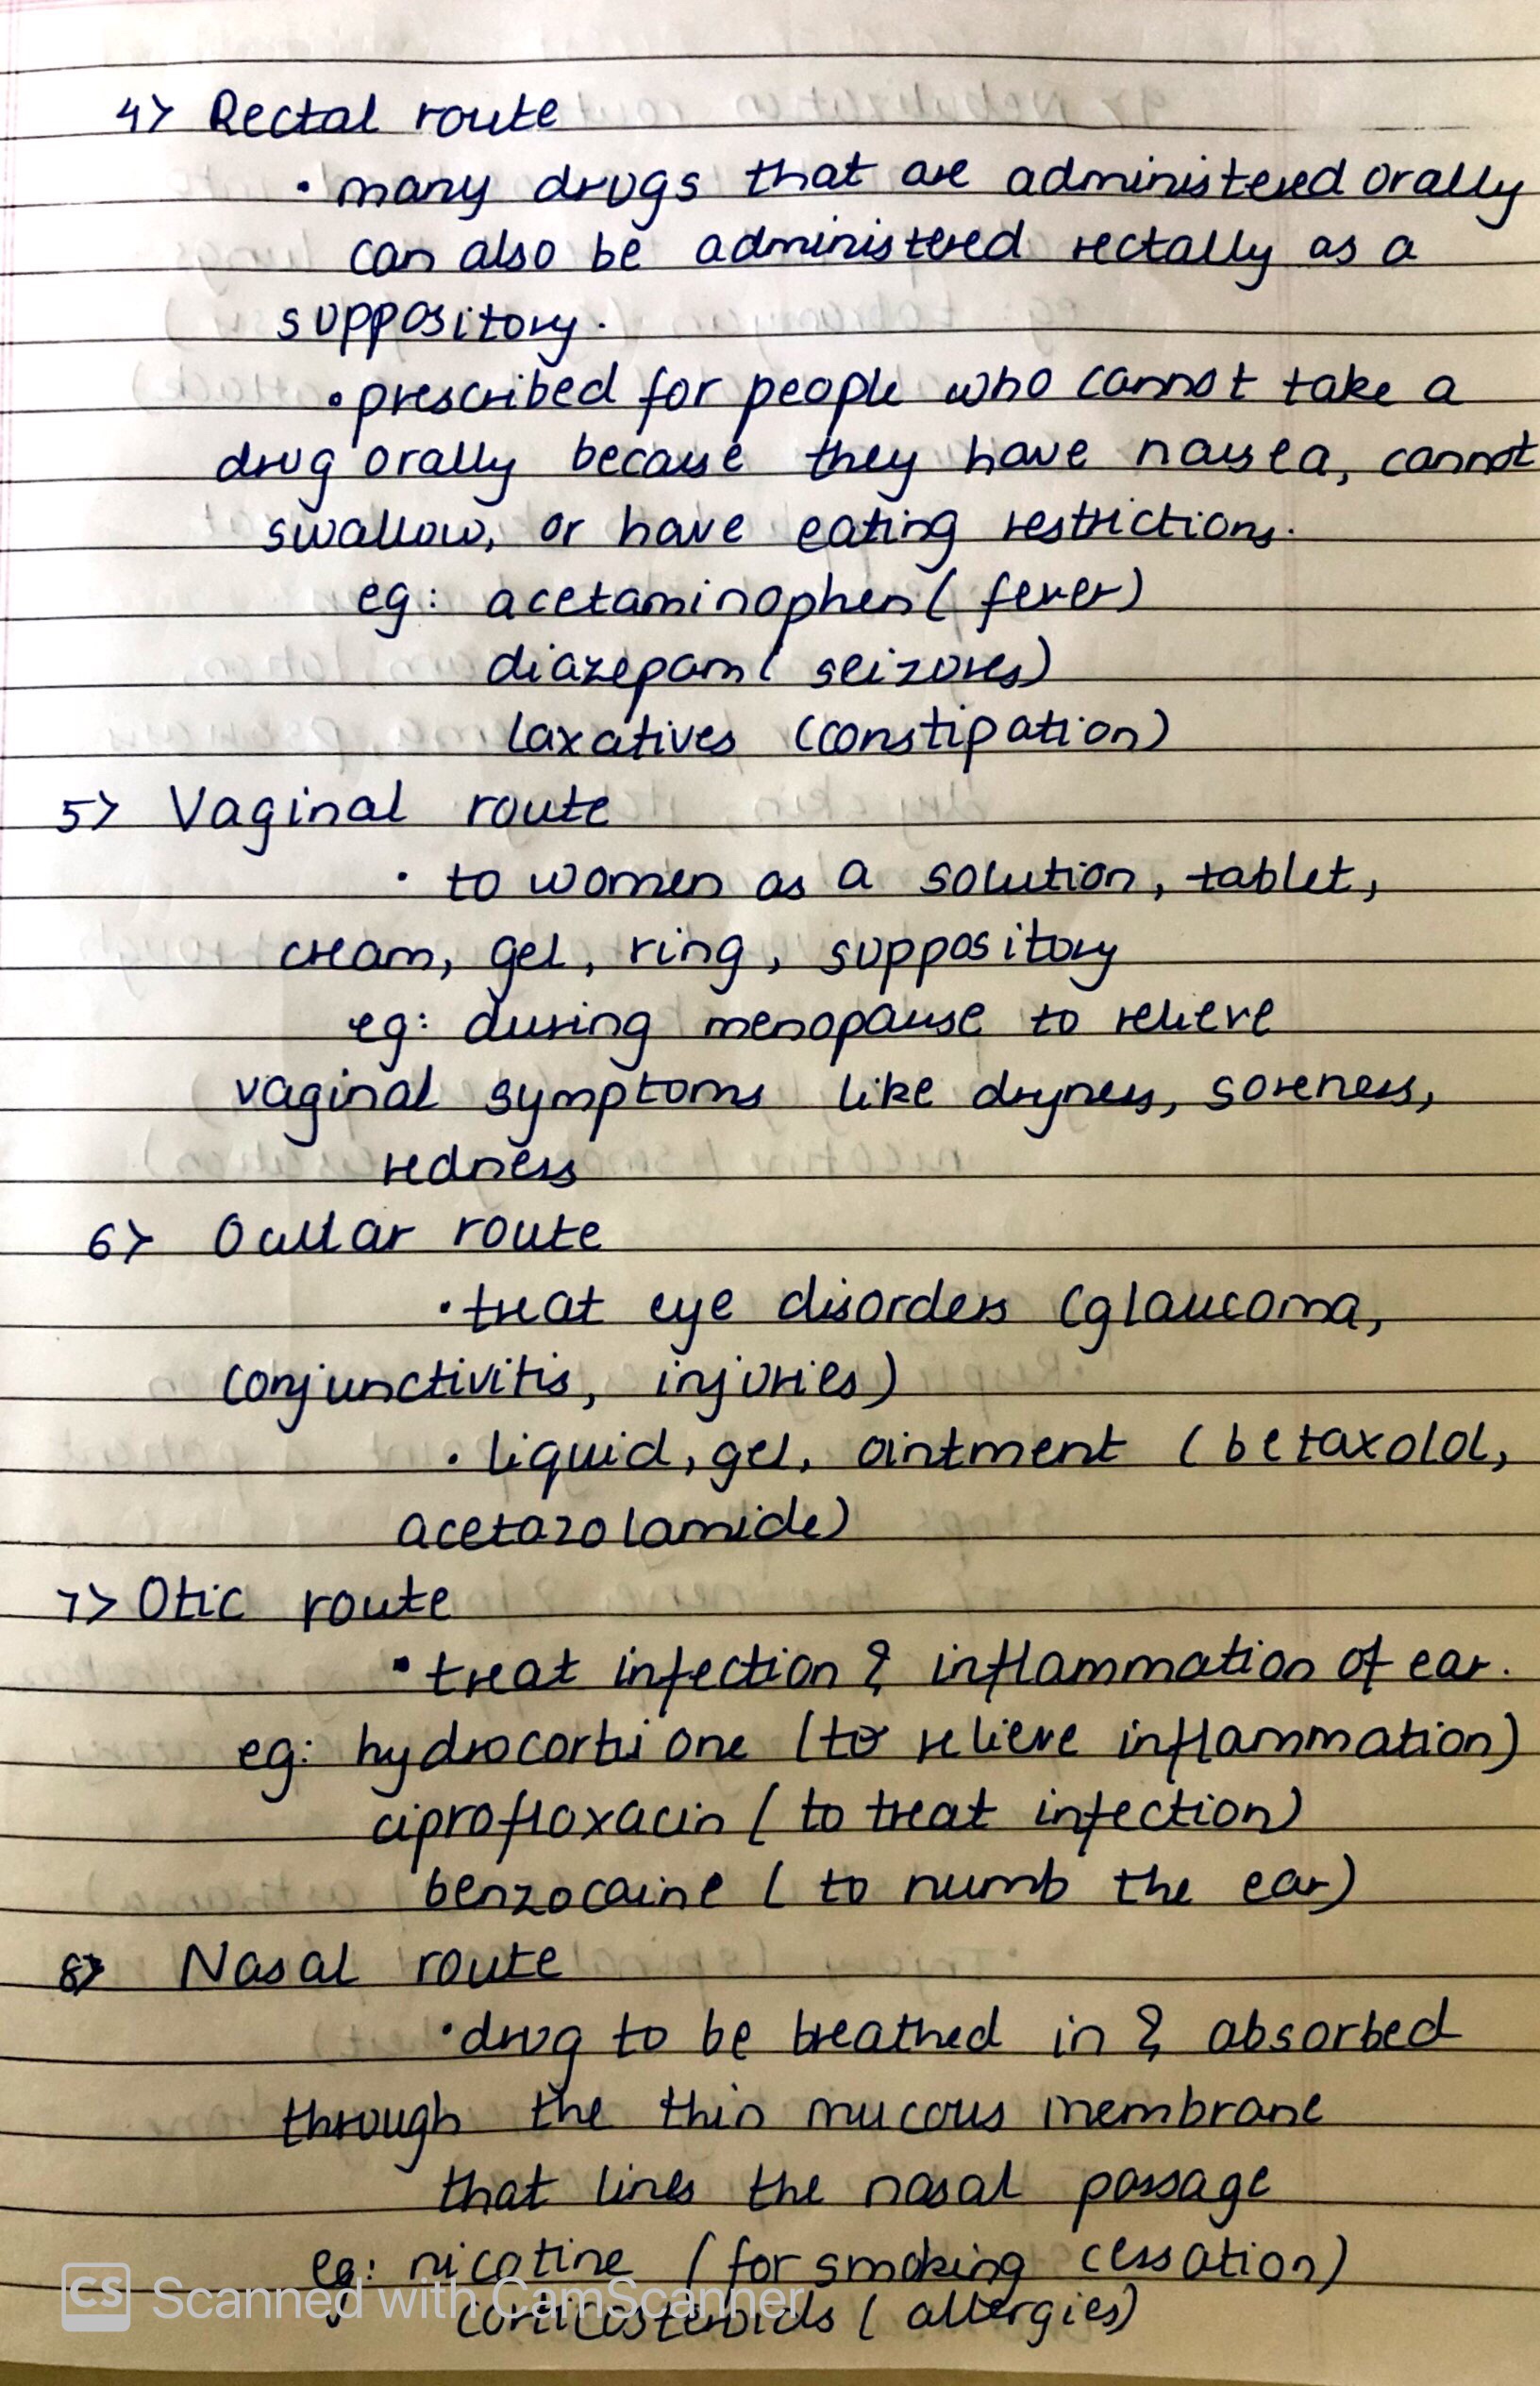 4> Rectal route
• many drugs that are administered orally
can also be administered rectally as a
suppository.
• prescribed for people who cannot take a
drug orally because they have nausea, cannot
swallow, or have eating restrictions.
eg: acetaminophen (fever)
diazepam (seizures)
laxatives (constipation)
5> Vaginal route
• to women as a solution, tablet,
cream, gel, ring, suppository
eg: during menopause to relieve
vaginal symptoms like dryness, soreness,
redness
6> Ocular route
• treat eye disorders (glaucoma,
conjunctivitis, injuries)
• liquid, gel, ointment (betaxolol,
acetazolamide)
7> Otic route
• treat infection & inflammation of ear.
eg: hydrocortisone (to relieve inflammation)
ciprofloxacin (to treat infection)
benzocaine (to numb the ear)
8> Nasal route
• drug to be breathed in & absorbed
through the thin mucous membrane
that lines the nasal passage
eg: nicotine (for smoking cessation)
corticosteroids (allergies)
CS Scanned with CamScanner